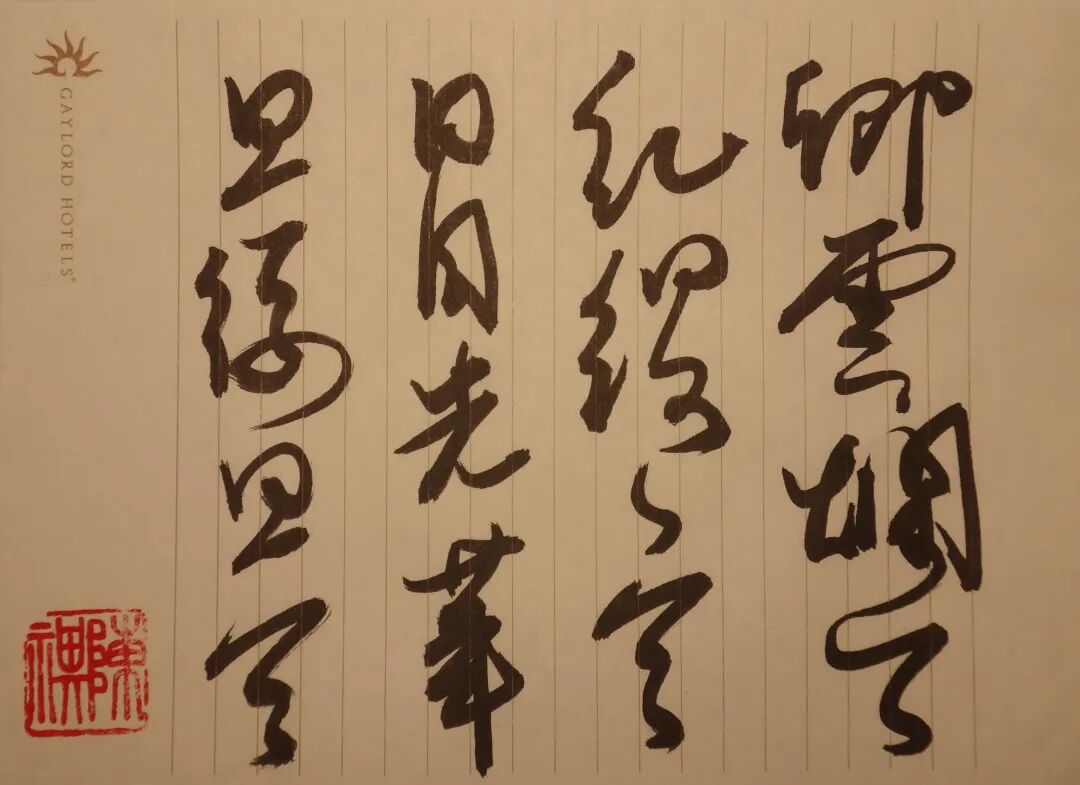 卿雲爛兮
糺縵々兮
日月光華
旦復旦兮
GAYLORD HOTELS®